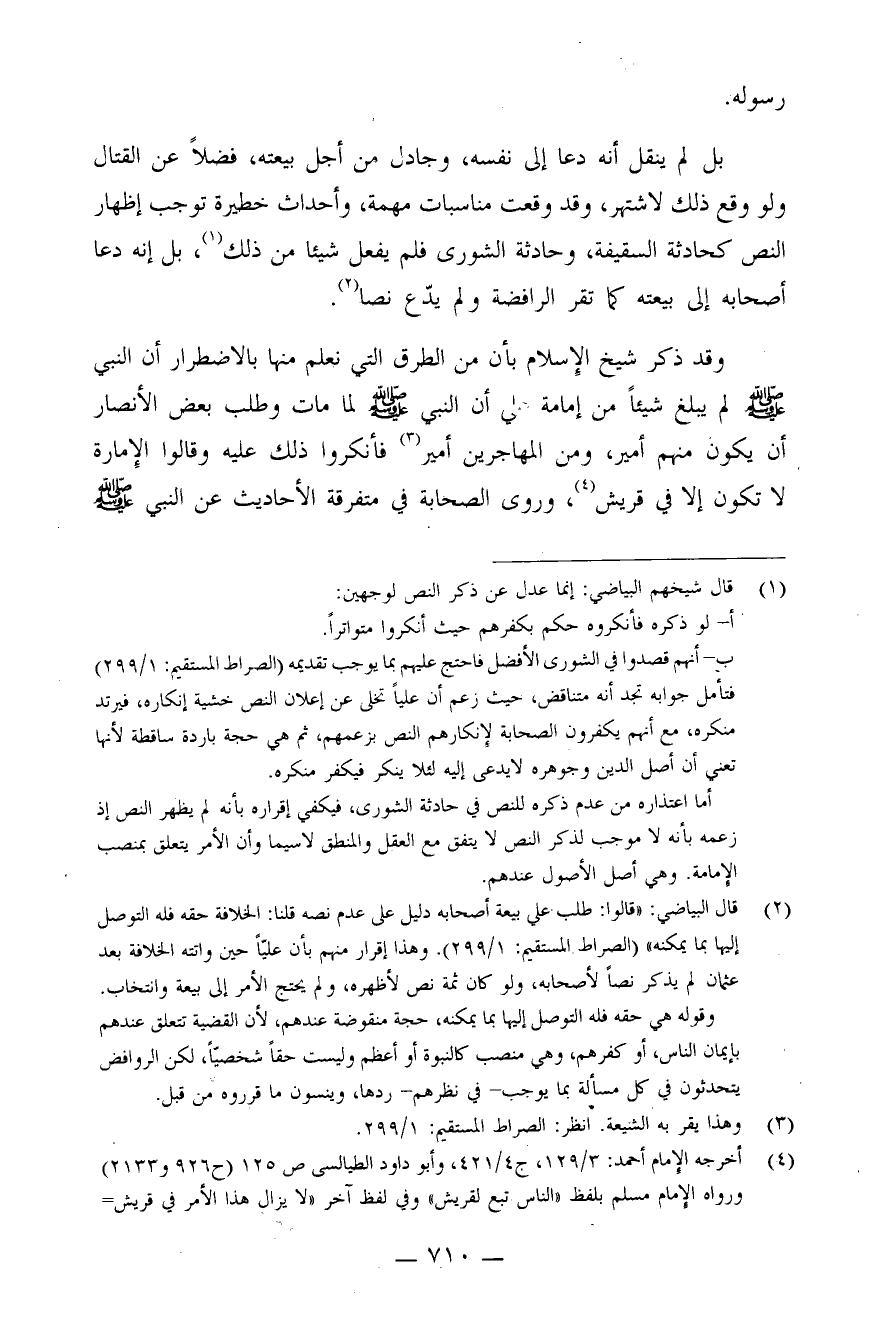 رسوله.
بل لم ينقل أنه دعا إلى نفسه، وجادل من أجل بيعته، فضلاً عن القتال
ولو وقع ذلك لاشتهر، وقد وقعت مناسبات مهمة، وأحداث خطيرة توجب إظهار
النص كحادثة السقيفة، وحادثة الشورى فلم يفعل شيئا من ذلك(١)، بل إنه دعا
أصحابه إلى بيعته كما تقر الرافضة ولم يدّع نصا(٢).
وقد ذكر شيخ الإسلام بأن من الطرق التي نعلم منها بالاضطرار أن النبي
ﷺ لم يبلغ شيئاً من إمامة علي أن النبي ﷺ لما مات وطلب بعض الأنصار
أن يكون منهم أمير، ومن المهاجرين أمير(٣) فأنكروا ذلك عليه وقالوا الإمارة
لا تكون إلا في قريش(٤)، وروى الصحابة في متفرقة الأحاديث عن النبي ﷺ
(١) قال شيخهم البياضي: إنما عدل عن ذكر النص لوجهين:
أ- لو ذكره فأنكروه حكم بكفرهم حيث أنكروا متواتراً.
ب- أنهم قصدوا في الشورى الأفضل فاحتج عليهم بما يوجب تقديمه (الصراط المستقيم: ٢٩٩/١)
فتأمل جوابه تجد أنه متناقض، حيث زعم أن علياً تخلى عن إعلان النص خشية إنكاره، فيرتد
منكره، مع أنهم يكفرون الصحابة لإنكارهم النص بزعمهم، ثم هي حجة باردة ساقطة لأنها
تعني أن أصل الدين وجوهره لايدعى إليه لئلا ينكر فيكفر منكره.
أما اعتذاره من عدم ذكره للنص في حادثة الشورى، فيكفي إقراره بأنه لم يظهر النص إذ
زعمه بأنه لا موجب لذكر النص لا يتفق مع العقل والمنطق لاسيما وأن الأمر يتعلق بمنصب
الإمامة. وهي أصل الأصول عندهم.
(٢) قال البياضي: «قالوا: طلب علي بيعة أصحابه دليل على عدم نصه قلنا: الخلافة حقه فله التوصل
إليها بما يمكنه» (الصراط المستقيم: ٢٩٩/١). وهذا إقرار منهم بأن عليّاً حين واتته الخلافة بعد
عثمان لم يذكر نصاً لأصحابه، ولو كان ثمة نص لأظهره، ولم يحتج الأمر إلى بيعة وانتخاب.
وقوله هي حقه فله التوصل إليها بما يمكنه، حجة منقوضة عندهم، لأن القضية تتعلق عندهم
بإيمان الناس، أو كفرهم، وهي منصب كالنبوة أو أعظم وليست حقاً شخصيّاً، لكن الروافض
يتحدثون في كل مسألة بما يوجب- في نظرهم- ردها، وينسون ما قرروه من قبل.
(٣) وهذا يقر به الشيعة. انظر: الصراط المستقيم: ٢٩٩/١.
(٤) أخرجه الإمام أحمد: ١٢٩/٣، ج٤٢١/٤، وأبو داود الطيالسى ص ١٢٥ (ح٩٢٦ و٢١٣٣)
ورواه الإمام مسلم بلفظ «الناس تبع لقريش» وفي لفظ آخر «لا يزال هذا الأمر في قريش=
— ٧١٠ —